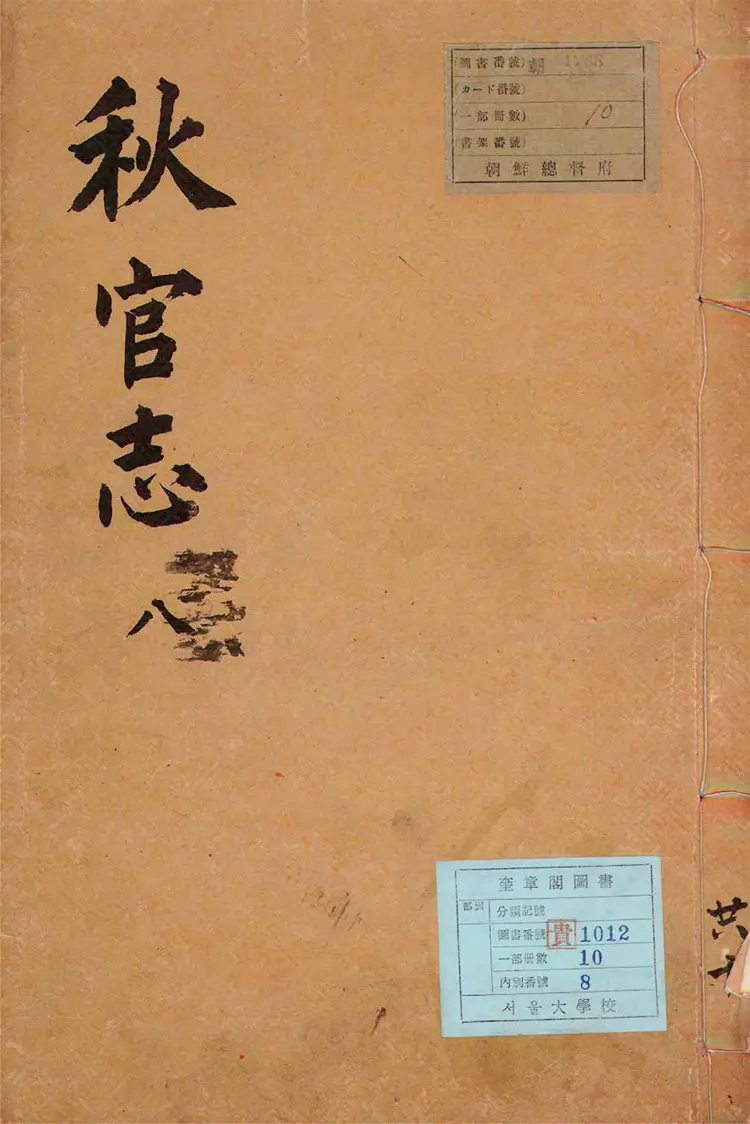 秋官志
八
(圖書番號) 朝
(カード番號)
(一部冊數) 10
(書架番號)
朝鮮總督府
奎章閣圖書
部別
分類記號
圖書番號 貴 1012
一部冊數 10
內別番號 8
서울大學校
共十